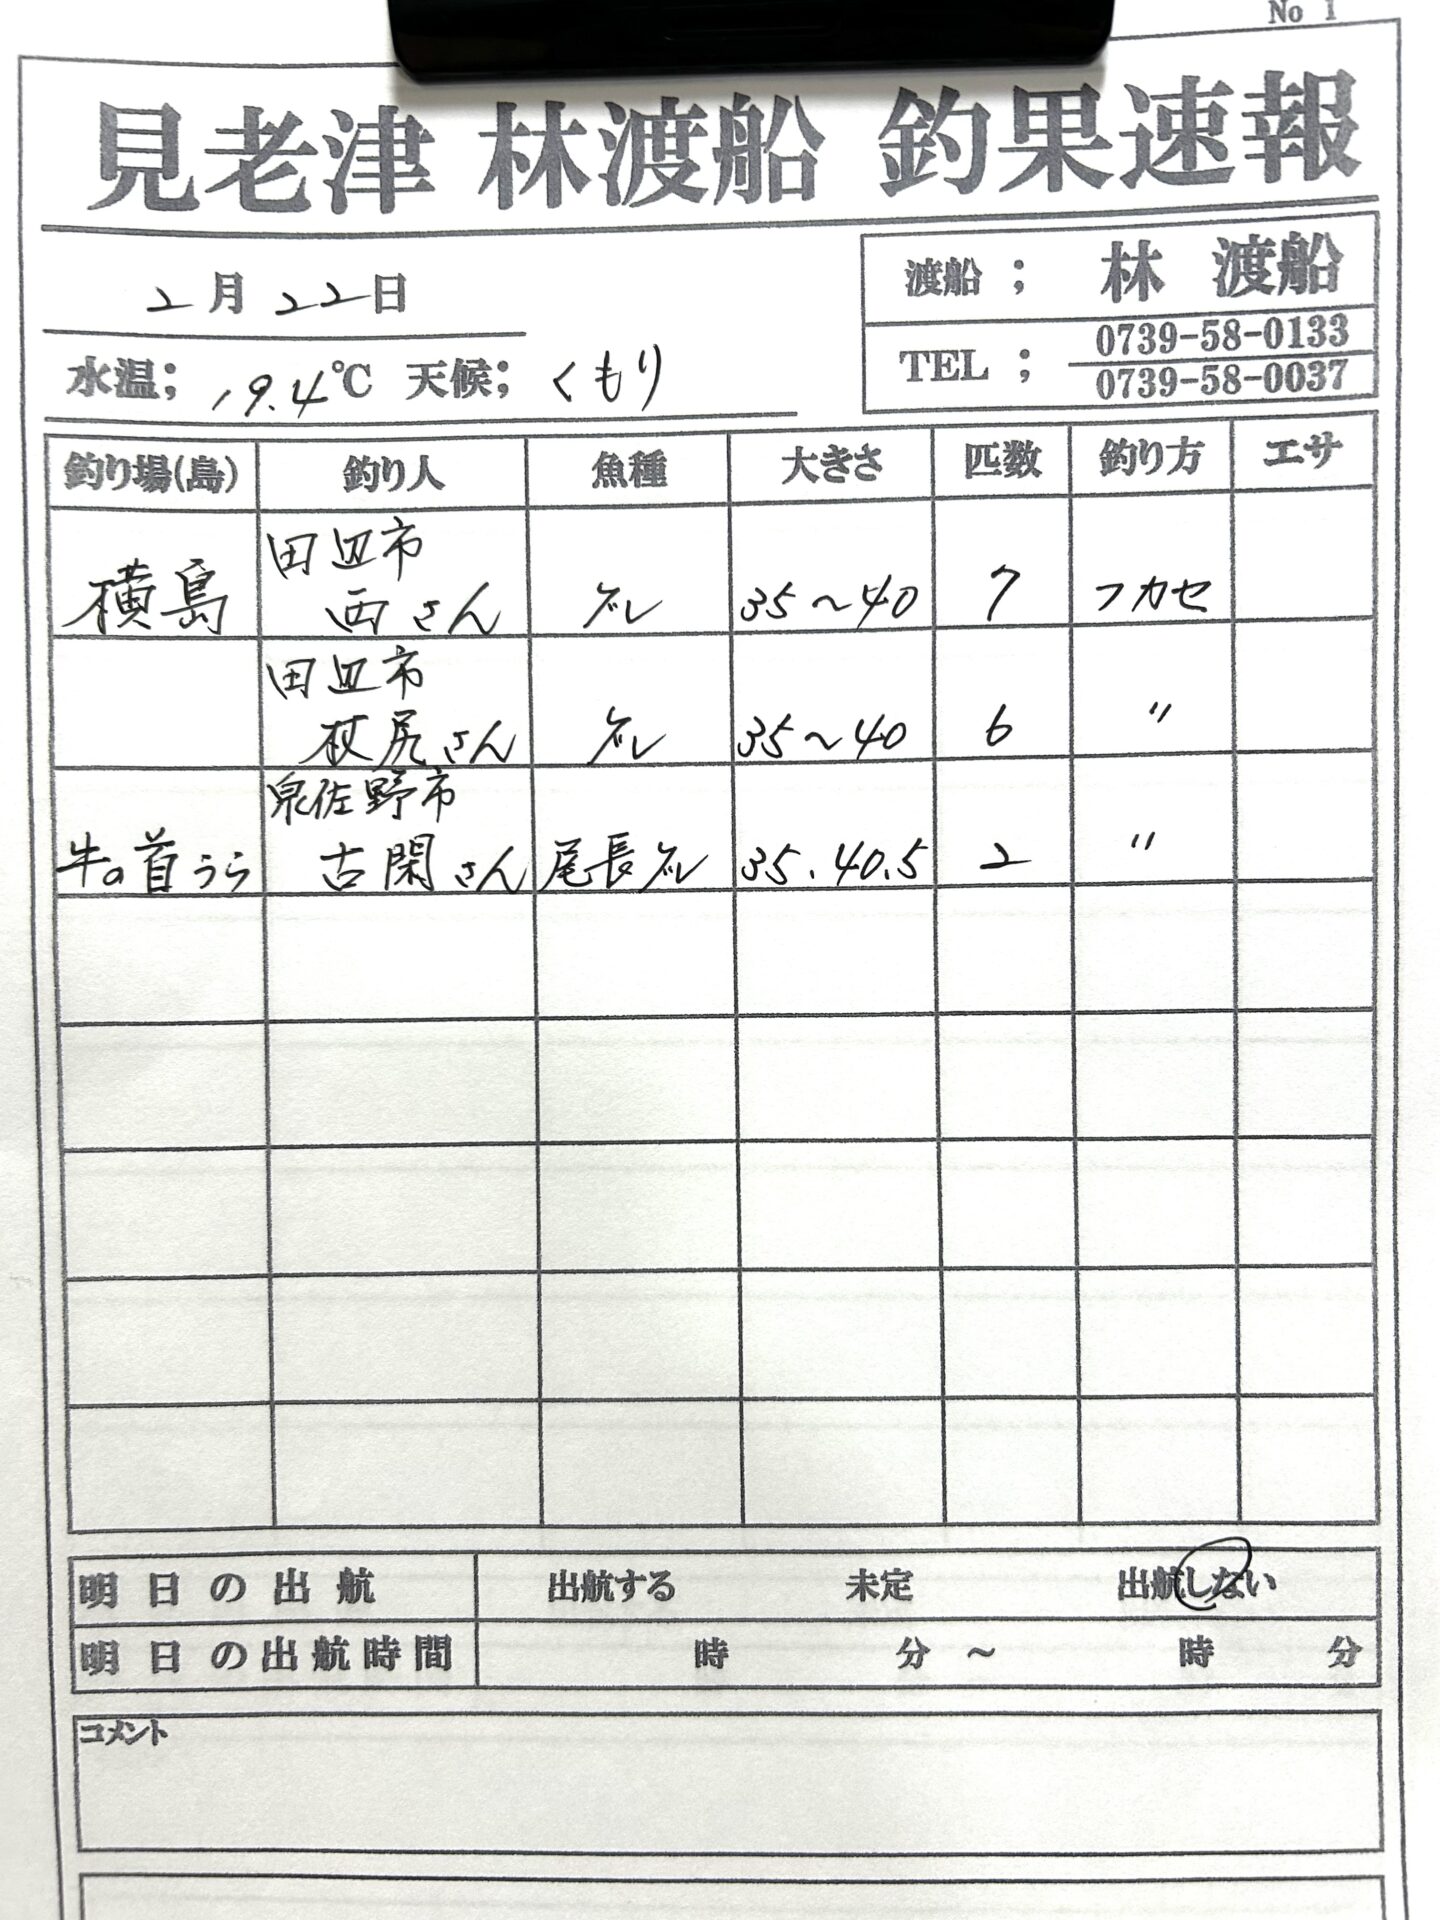 No 1
見老津 林渡船 釣果速報
2月22日
渡船 ; 林 渡船
TEL ; 0739-58-0133
0739-58-0037
水温; 19.4℃ 天候; くもり
釣り場(島) 釣り人 魚種 大きさ 匹数 釣り方 エサ
田辺市
横島 西さん グレ 35〜40 7 フカセ
田辺市
杖尻さん グレ 35〜40 6 〃
泉佐野市
牛の首うら 古閑さん 尾長グレ 35.40.5 2 〃
明日の出航 出航する 未定 出航しない
明日の出航時間 時 分 ～ 時 分
コメント